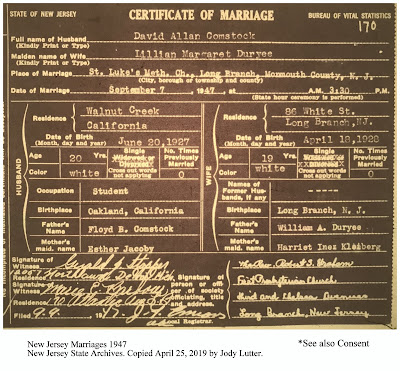 STATE OF NEW JERSEY
CERTIFICATE OF MARRIAGE
BUREAU OF VITAL STATISTICS
170
Full name of Husband David Allan Comstock
(Kindly Print or Type)
Maiden name of Wife Lillian Margaret Duryee
(Kindly Print or Type)
Place of Marriage St. Luke's Meth. Ch., Long Branch, Monmouth County, N. J.
(City, borough or township and county)
Date of Marriage September 7 1947 at A.M. 3:30 P.M.
(State hour ceremony is performed)
HUSBAND
Residence Walnut Creek
California
Date of Birth
(Month, day and year) June 20, 1927
Age 20 Yrs.
Single
Widowed or Divorced
Cross out words not applying
No. Times Previously Married
0
Color white
Occupation Student
Birthplace Oakland, California
Father's Name Floyd B. Comstock
Mother's maid. name Esther Jacoby
WIFE
Residence 86 White St.
Long Branch, NJ
Date of Birth
(Month, day and year) April 18, 1928
Age 19 Yrs.
Single
Widowed or Divorced
Cross out words not applying
No. Times Previously Married
0
Color white
Names of Former Husbands, if any -----
Birthplace Long Branch, N. J.
Father's Name William A. Duryee
Mother's maid. name Harriet Inez Kleiberg
Signature of Witness
Residence
Signature of Witness
Residence
Filed 9-9 1947
Local Registrar.
Signature of person or officer of society officiating, title and address.
The Rev. Robert S. Graham
First Presbyterian Church
Third and Chelsea Avenues
Long Branch, New Jersey
New Jersey Marriages 1947
New Jersey State Archives. Copied April 25, 2019 by Jody Lutter.
*See also Consent